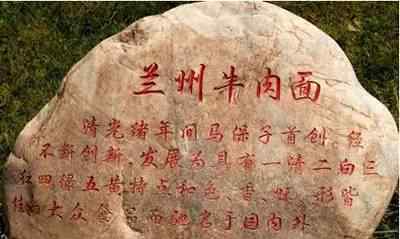 兰州牛肉面
清光绪年间马保子首创、经
不断创新、发展为具有一清二白三
红四绿五黄特点和色、香、味、形皆
佳的大众而驰名于国内外